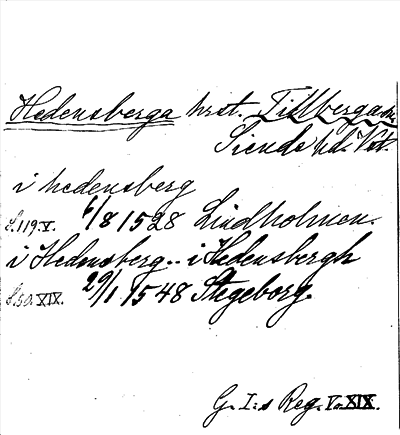 Hedensberga hrst. Tillberga sn.
Siende hd. Vst.
i hedensberg
S.119.V. 6/8 1528 Lindholmen.
i Hedensberg.. i Hedensbergh
S.50.XIX. 29/1 1548 Stegeborg.
G. I:s Reg. V. XIX.